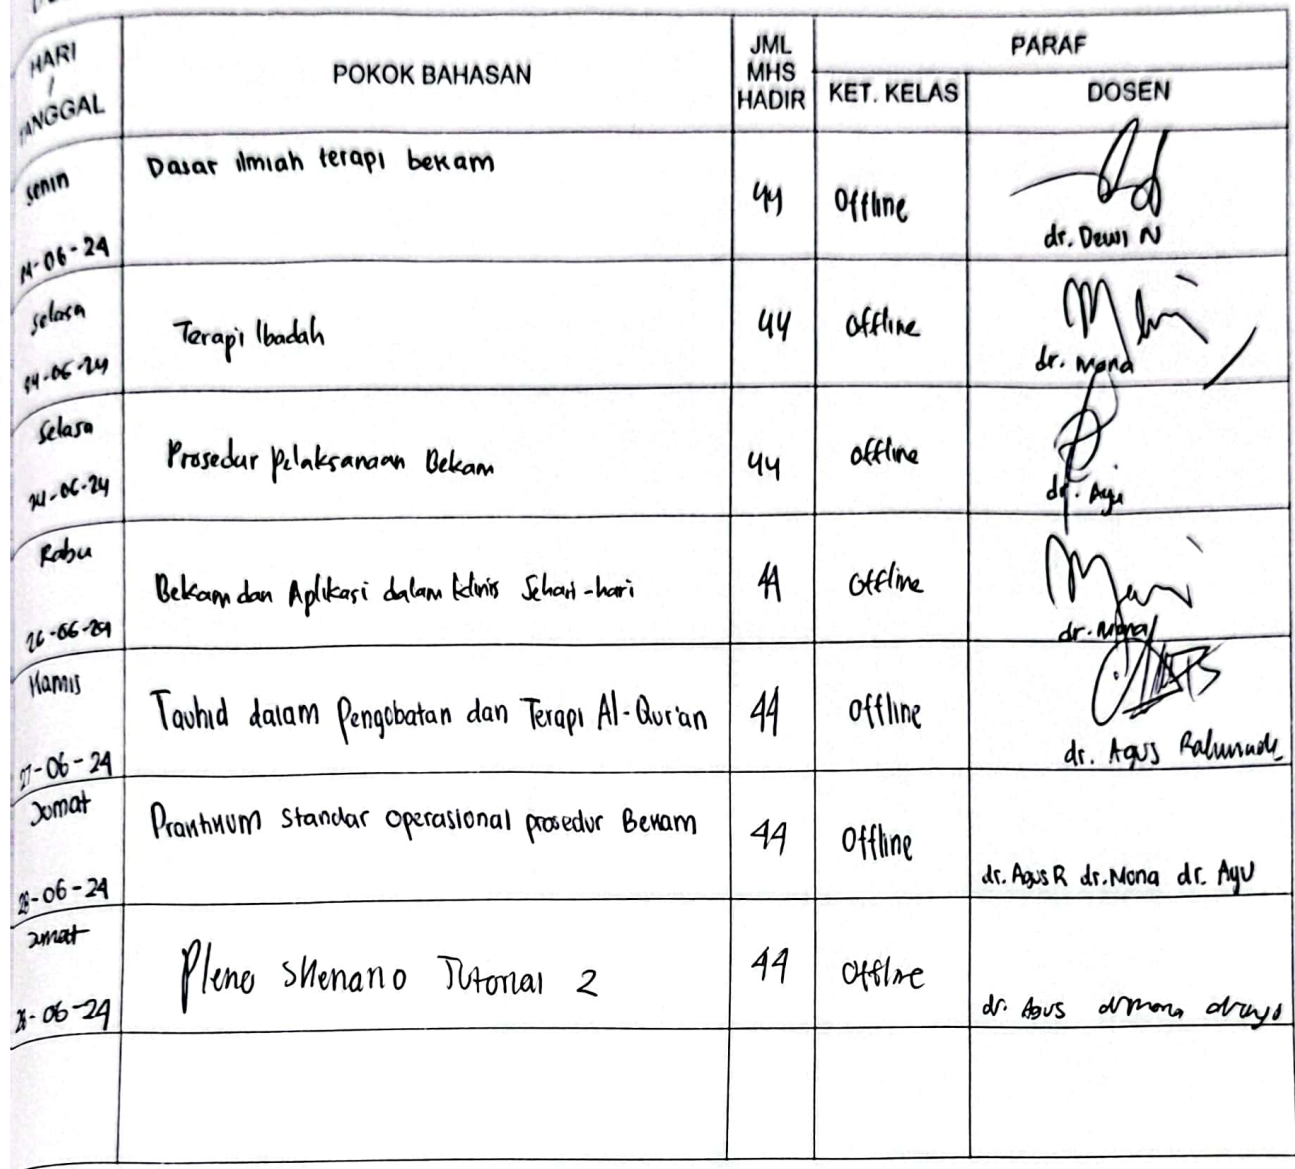 HARI
/
TANGGAL
POKOK BAHASAN
JML
MHS
HADIR
PARAF
KET. KELAS
DOSEN
Senin
Dasar ilmiah terapi bekam
44
Offline
-06-24
dr. Dewi N
Selasa
Terapi Ibadah
44
Offline
-06-24
dr. Mona
Selasa
Prosedur pelaksanaan Bekam
44
offline
-06-24
dr. Ayu
Rabu
Bekam dan Aplikasi dalam klinis Sehari-hari
44
Offline
26-06-24
dr. Mona
Kamis
Tauhid dalam Pengobatan dan Terapi Al-Qur'an
44
Offline
27-06-24
dr. Agus
Jumat
Praktikum Standar operasional prosedur Bekam
44
Offline
28-06-24
dr. Agus R dr. Mona dr. Ayu
Jumat
Pleno Skenario Tutorial 2
44
Offline
28-06-24
dr. Agus dr mona dr ayu